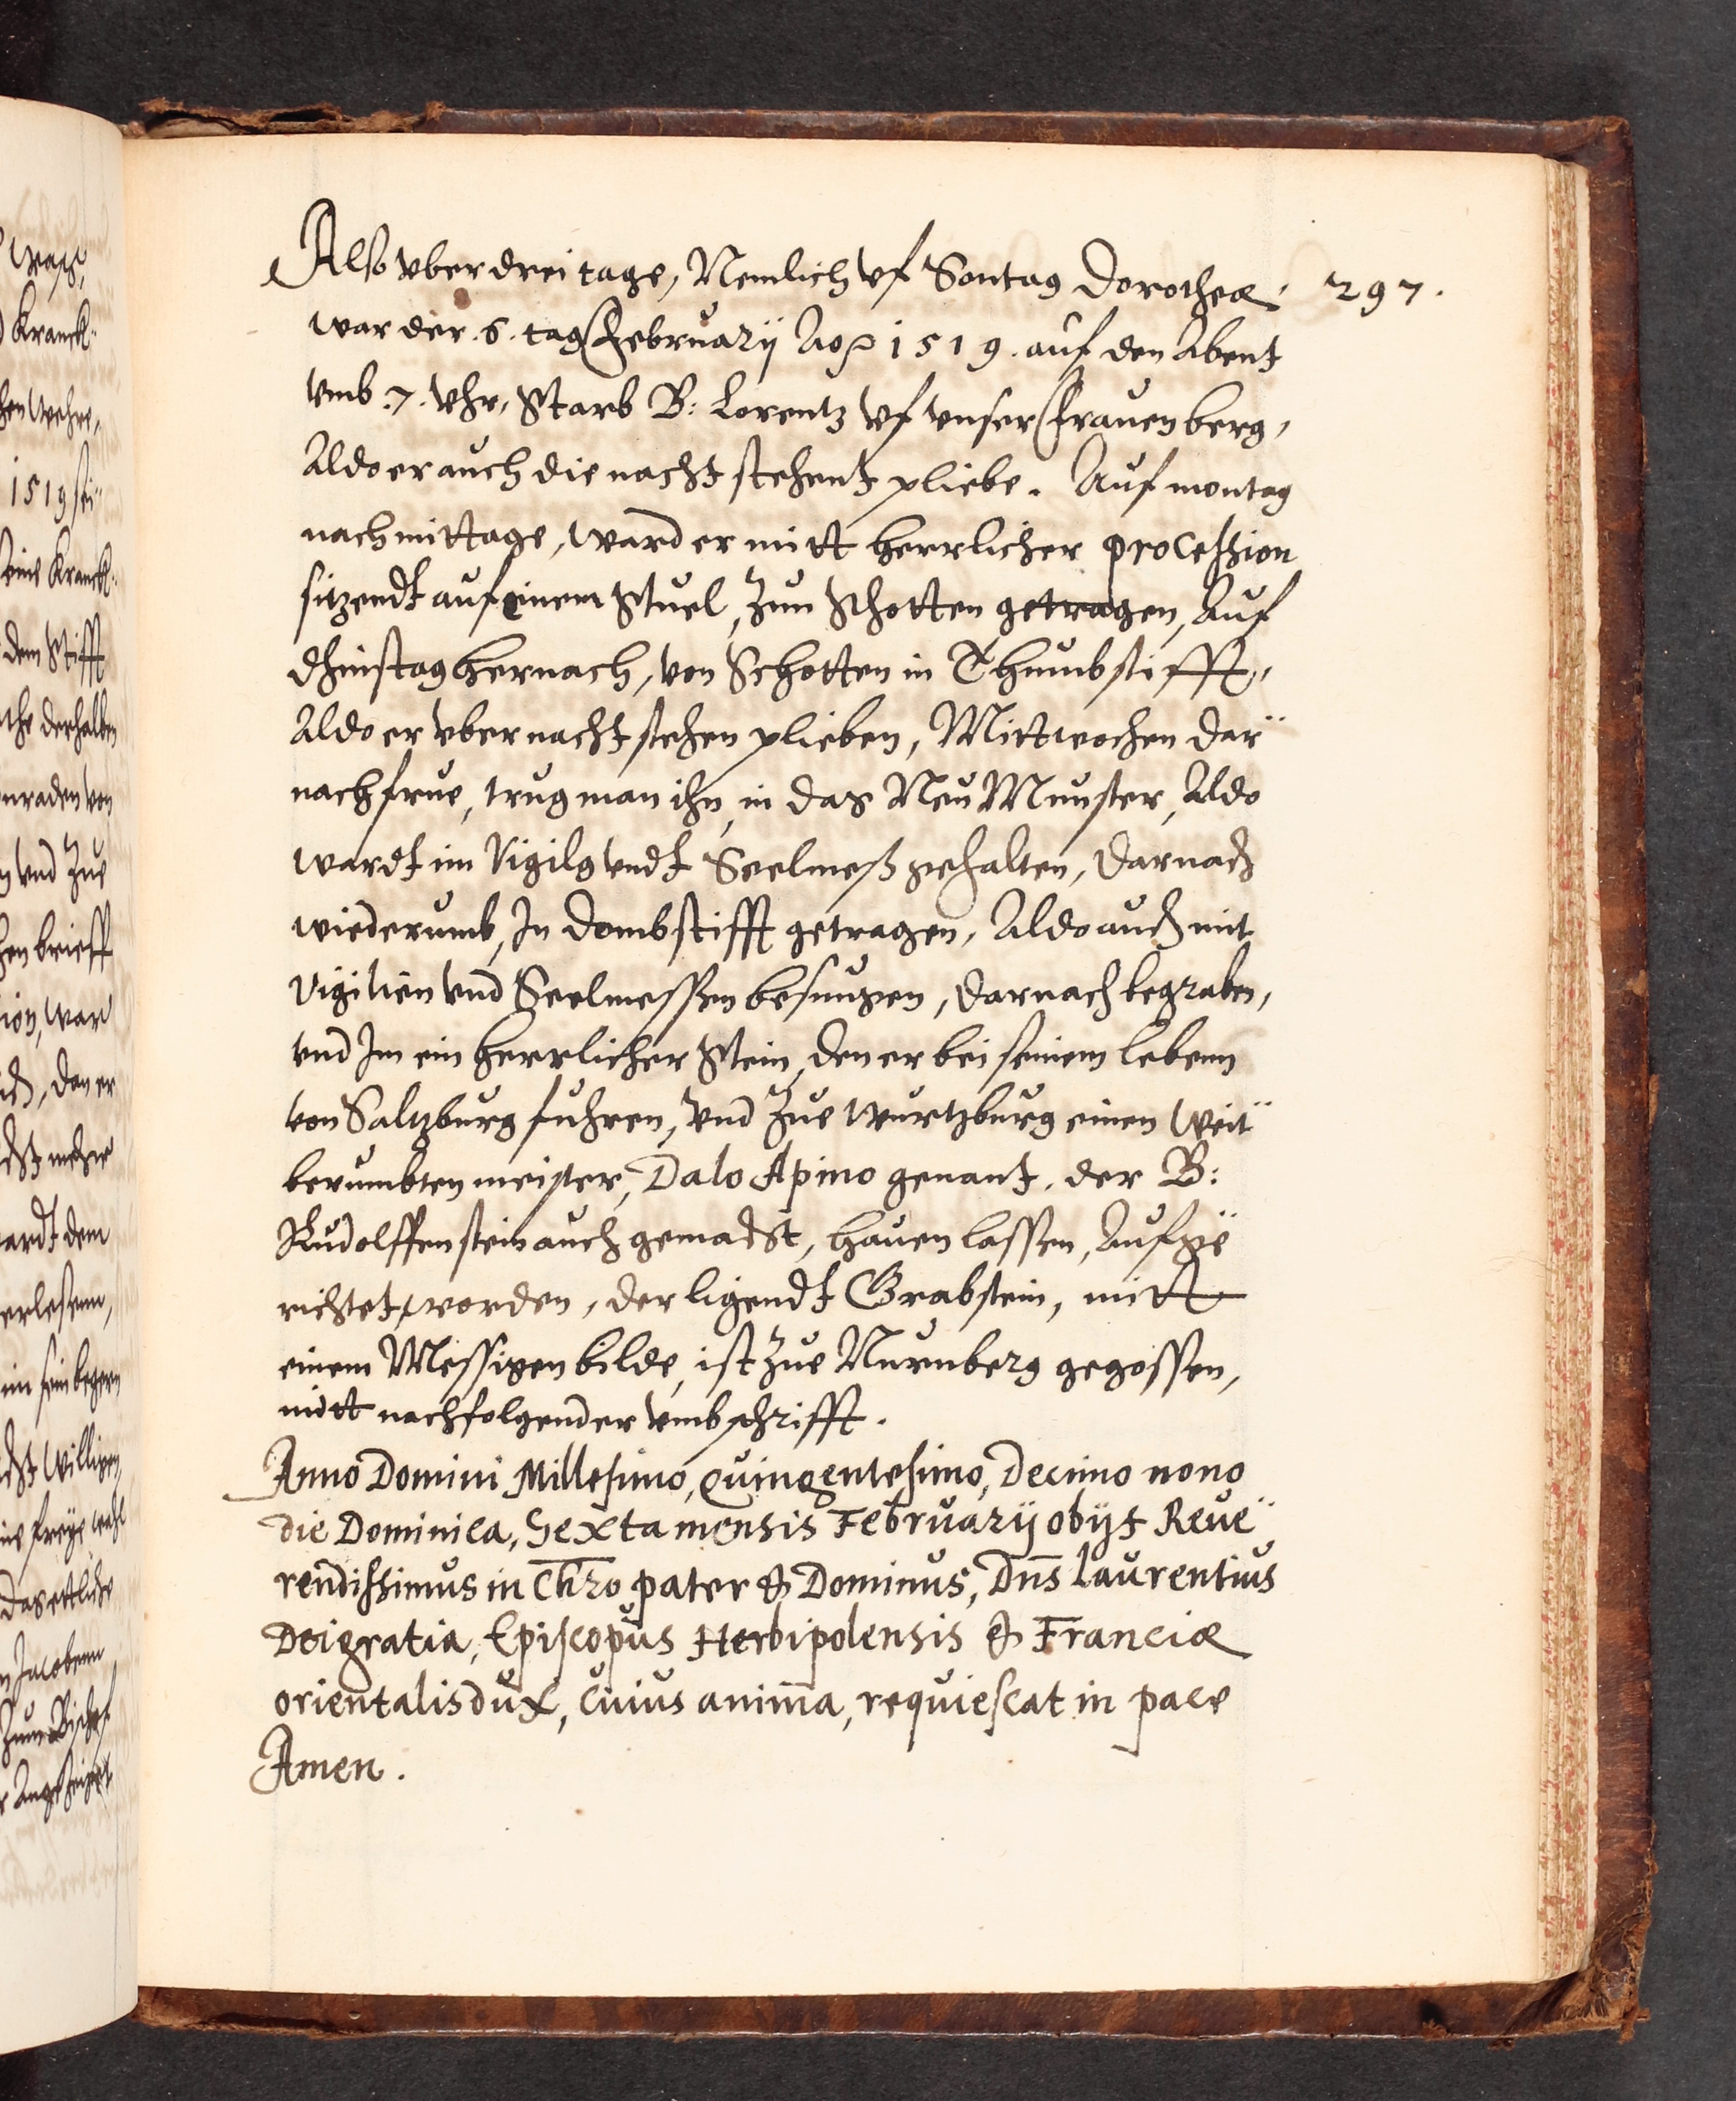 Also vber drei tage, Nemlich vf Sontag Dorotheæ, 297.
war der .6. tag Februarij Aō 1519. auf den Abent
vmb .7. vhr, Starb B: Lorentz vf vnser frauen berg,
Aldo er auch die nacht stehent pliebe. Auf montag
nach mittage, ward er mitt herrlicher procession
sitzendt auf einem Stuel, Zun Schotten getragen, Auf
dhinstag hernach, von Schotten in Thumbstifft,
Aldo er vber nacht stehen plieben, Mittwochen dar¨
nach frue, trug man ihn, in das Neu Munster, Aldo
wardt im Vigilg vndt Seelmeß gehalten, Darnach
wiederumb, In Dombstifft getragen, Aldo auch mit
Vigilien vnd Seelmessen besungen, Darnach begraben,
vnd Im ein herrlicher Stein, den er bei seinem lebenn
von Saltzburg fuhren, vnd Zue Wurtzburg einen Weit¨
berumbten meister, Dalo Apino genant, der B:
Rudolffen stein auch gemacht, hauen lassen, Aufge¨
richtet worden, der ligendt Grabstein, mitt
einem Messigen bilde, ist Zue Nurnberg gegossen,
mitt nachfolgender vmbschrifft.
Anno Domini Millesimo, quingentesimo, Decimo nono
die Dominica, Sexta mensis Februarij obijt Reue¨
rendissimus in Chr̄o pater & Dominus, Dn̄s Laurentius
Dei gratia, Episcopus Herbipolensis & Franciæ
orientalis dux, Cuius anima, requiescat in pace
Amen.